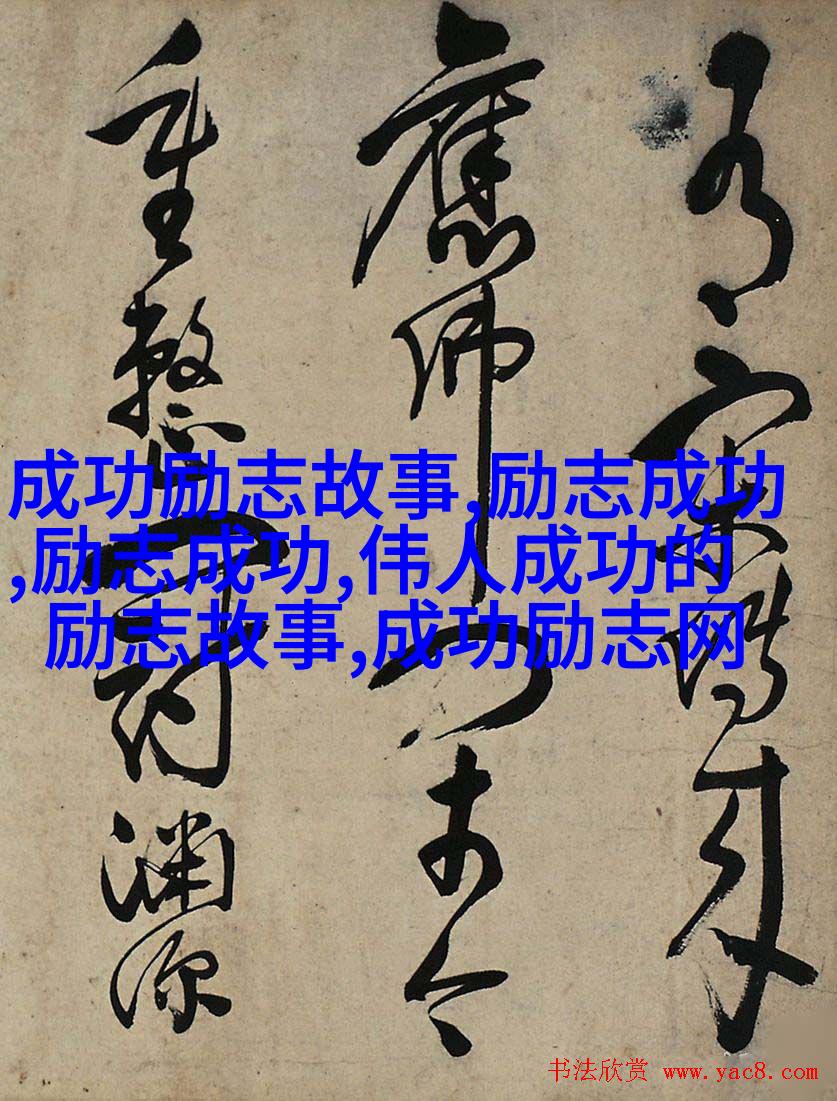 成功励志故事,励志成功
,励志成功,伟人成功的
励志故事,成功励志网
有宋
古今
重整淵源
书法欣赏 www.yac8.com